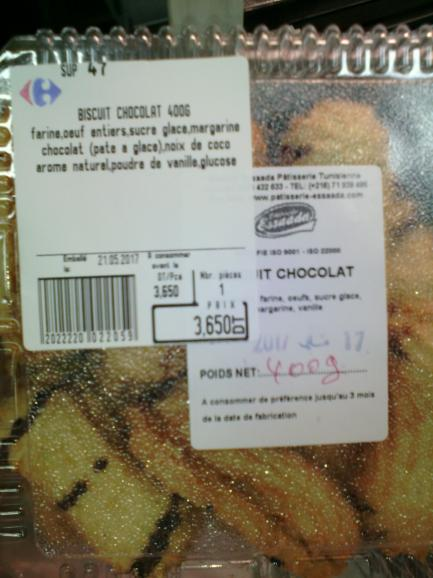 SUP 47
BISCUIT CHOCOLAT 400G
farine,oeuf entiers,sucre glace,margarine
chocolat (pate a glace),noix de coco
arome naturel,poudre de vanille,glucose
Emballé le: 21.05.2017
A consommer avant le
DT/Pce
3,650
Nbr. pièces
1
PRIX
3,650
2022220 022059
Pâtisserie Tunisienne
432 633 - TEL: (+216) 71 939 495
www.patisserie-essaada.com
Essaada
FIE ISO 9001 - ISO 22000
IT CHOCOLAT
farine, oeufs, sucre glace,
margarine, vanille
2017 17
POIDS NET: 400g
A consommer de préférence jusqu'au 3 mois
de la date de fabrication